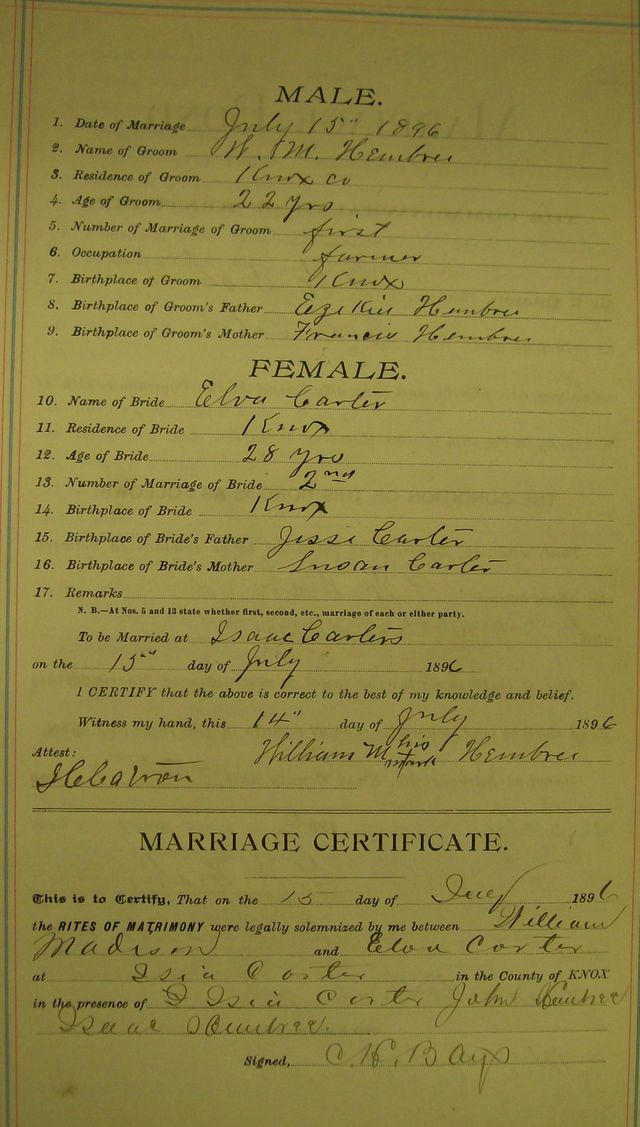 MALE.
1. Date of Marriage July 15" 1896
2. Name of Groom W. M. Hembree
3. Residence of Groom Knox co
4. Age of Groom 22 yrs
5. Number of Marriage of Groom first
6. Occupation farmer
7. Birthplace of Groom Knox
8. Birthplace of Groom's Father Ezekiel Hembree
9. Birthplace of Groom's Mother Francis Hembree
FEMALE.
10. Name of Bride Elva Carter
11. Residence of Bride Knox
12. Age of Bride 28 yrs
13. Number of Marriage of Bride 2nd
14. Birthplace of Bride Knox
15. Birthplace of Bride's Father Jessi Carter
16. Birthplace of Bride's Mother Susan Carter
17. Remarks
N. B.—At Nos. 5 and 13 state whether first, second, etc., marriage of each or either party.
To be Married at Isaac Carters
on the 15" day of July 1896
I CERTIFY that the above is correct to the best of my knowledge and belief.
Witness my hand, this 14" day of July 1896
Attest: William M his mark Hembree
MARRIAGE CERTIFICATE.
This is to Certify, That on the 15 day of July 1896
the RITES OF MATRIMONY were legally solemnized by me between William
Madison and Elva Carter
at Isia Carter in the County of KNOX
in the presence of Isia Carter John Hembree
Isaac Hembree.
Signed, C. H. Bays